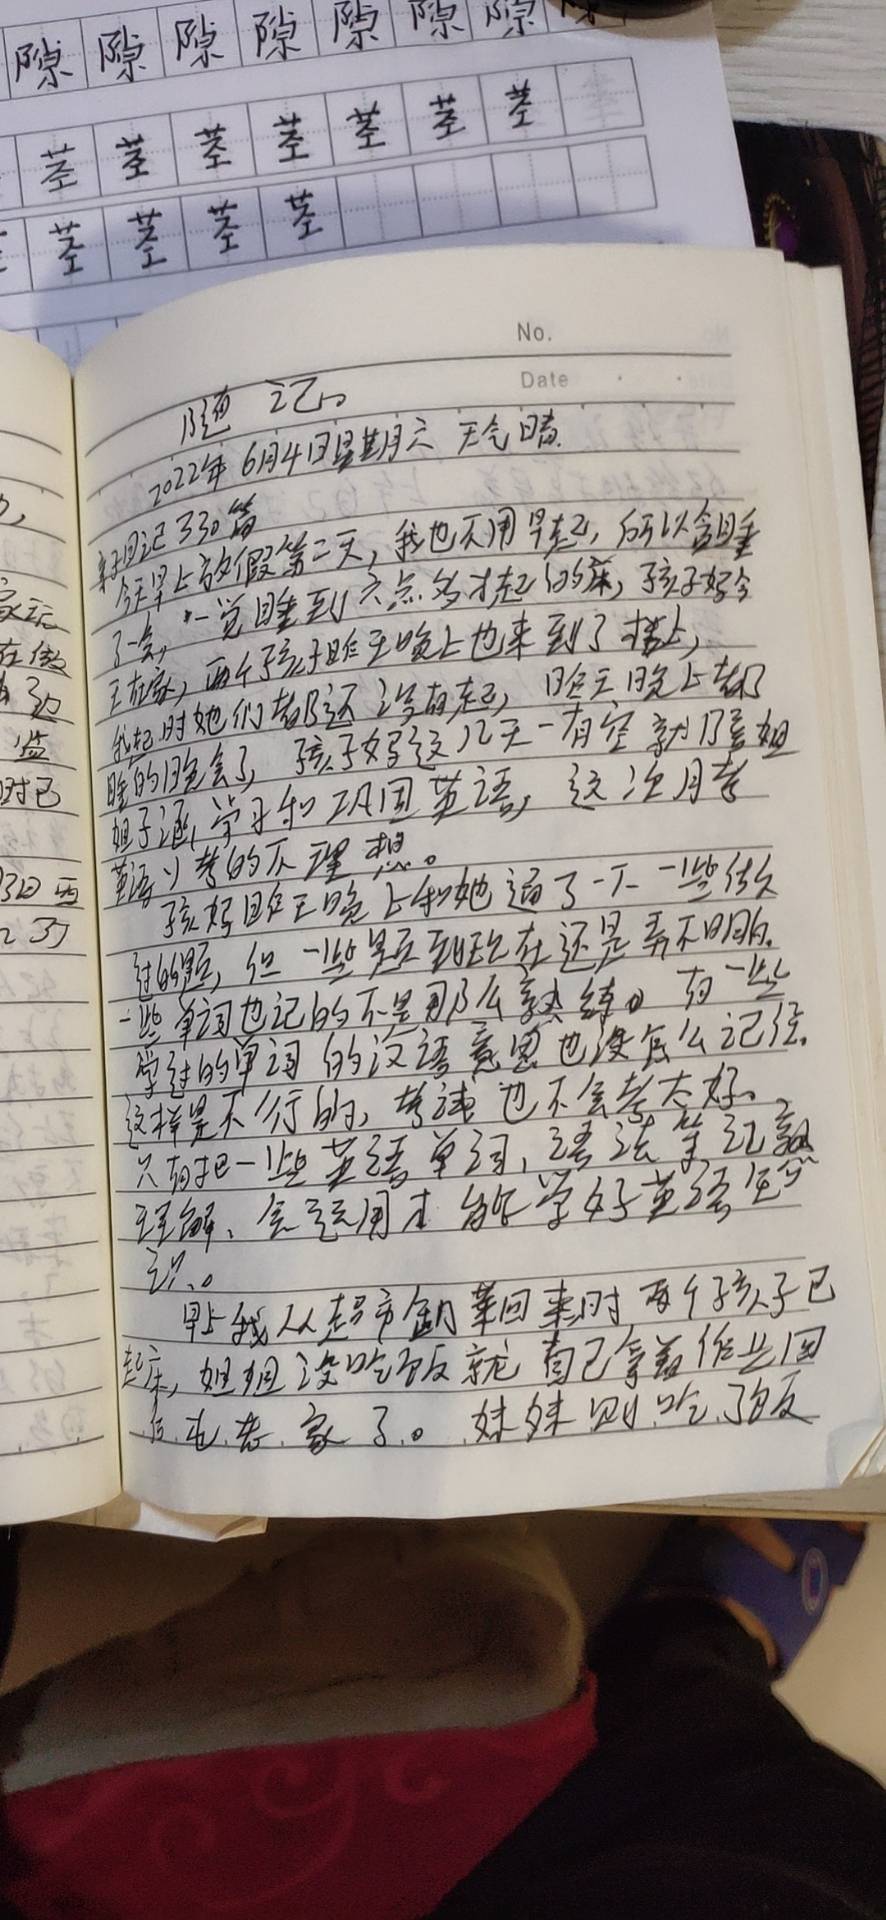 隙 隙 隙 隙 隙 隙 隙
茎 茎 茎 茎 茎 茎 茎
茎 茎 茎 茎
No.
Date
随 记。
2022年6月4日星期六 天气晴
亲子日记330篇
今天早上放假第二天,我也不用早起,所以含睡
了一会,一觉睡到六点多才起的床,孩子妈今
天在家,两个孩子昨天晚上也来到了楼上,
我起时她们都还没有起,昨天晚上都
睡的晚会了,孩子妈这几天一有空就陪姐
姐子涵,学习和巩固英语,这次月考
英语又考的不理想。
孩妈昨天晚上和她过了一下一些做
过的题,但一些题到现在还是弄不明白。
一些单词也记的不是那么熟练。有一些
学过的单词的汉语意思也没怎么记住。
这样是不行的,考试也不会考太好。
只有把一些英语单词,语法等记熟
理解、会运用才能学好英语知
识。
早上我从超市买菜回来时两个孩子已
起床,姐姐没吃饭就自己拿着作业回
后老家了。妹妹则吃了饭